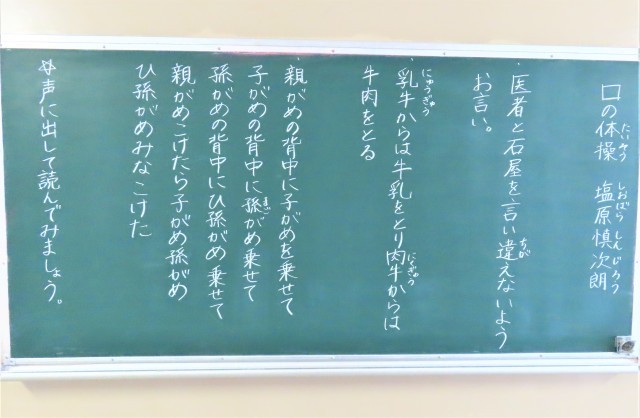 口の体操 塩原慎次朗
たいそう しおばら しんじろう
・医者と石屋を言い違えないよう
ちが
お言い。
・乳牛からは牛乳をとり肉牛からは
にゅうぎゅう にくぎゅう
牛肉をとる
・親がめの背中に子がめを乗せて
子がめの背中に孫がめ乗せて
まご
孫がめの背中にひ孫がめ乗せて
親がめこけたら子がめ孫がめ
ひ孫がめみなこけた
声に出して読んでみましょう。